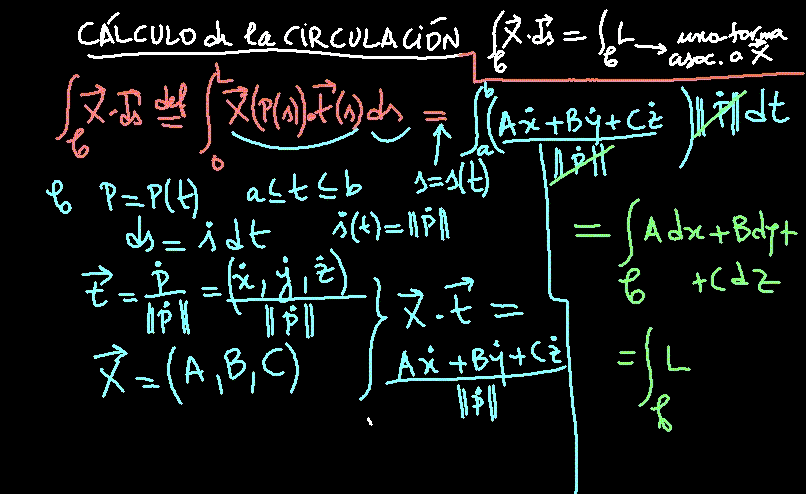 CÁLCULO de la CIRCULACIÓN
∫_C X⃗·ds⃗ = ∫_C L → una forma
asoc. a X⃗
∫_C X⃗·ds⃗ =def ∫_0^L X⃗(P(s))t⃗(s)ds = ∫_a^b (Aẋ+Bẏ+Cż / ||Ṗ||) ||Ṗ|| dt
C P=P(t) a≤t≤b s=s(t)
ds = ṡ dt ṡ(t)=||Ṗ||
t⃗ = Ṗ / ||Ṗ|| = (ẋ, ẏ, ż) / ||Ṗ||
X⃗ = (A, B, C)
} X⃗·t⃗ =
Aẋ+Bẏ+Cż / ||Ṗ||
= ∫_C Adx+Bdy+
+Cdz
= ∫_C L